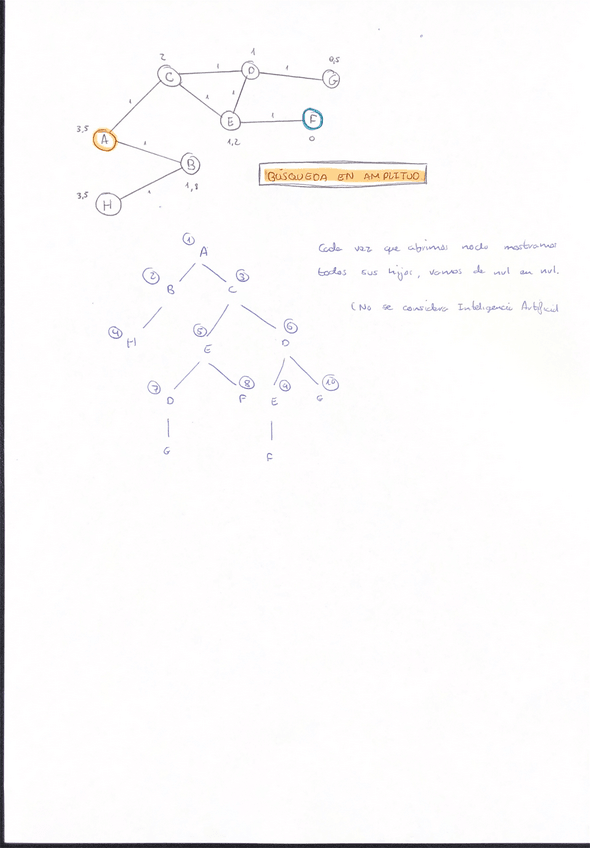 2
1
0,5
C
1
D
1
G
1
1
1
3,5
E
1
F
A
1
1,2
0
B
BÚSQUEDA EN AMPLITUD
3,5
1,8
H
1
1
A
Cada vez que abrimos nodo mostramos
2
3
B
C
todos sus hijos, vamos de nvl en nvl.
(No se considera Inteligencia Artificial
4
5
6
H
E
D
7
8
9
10
D
F
E
G
G
F